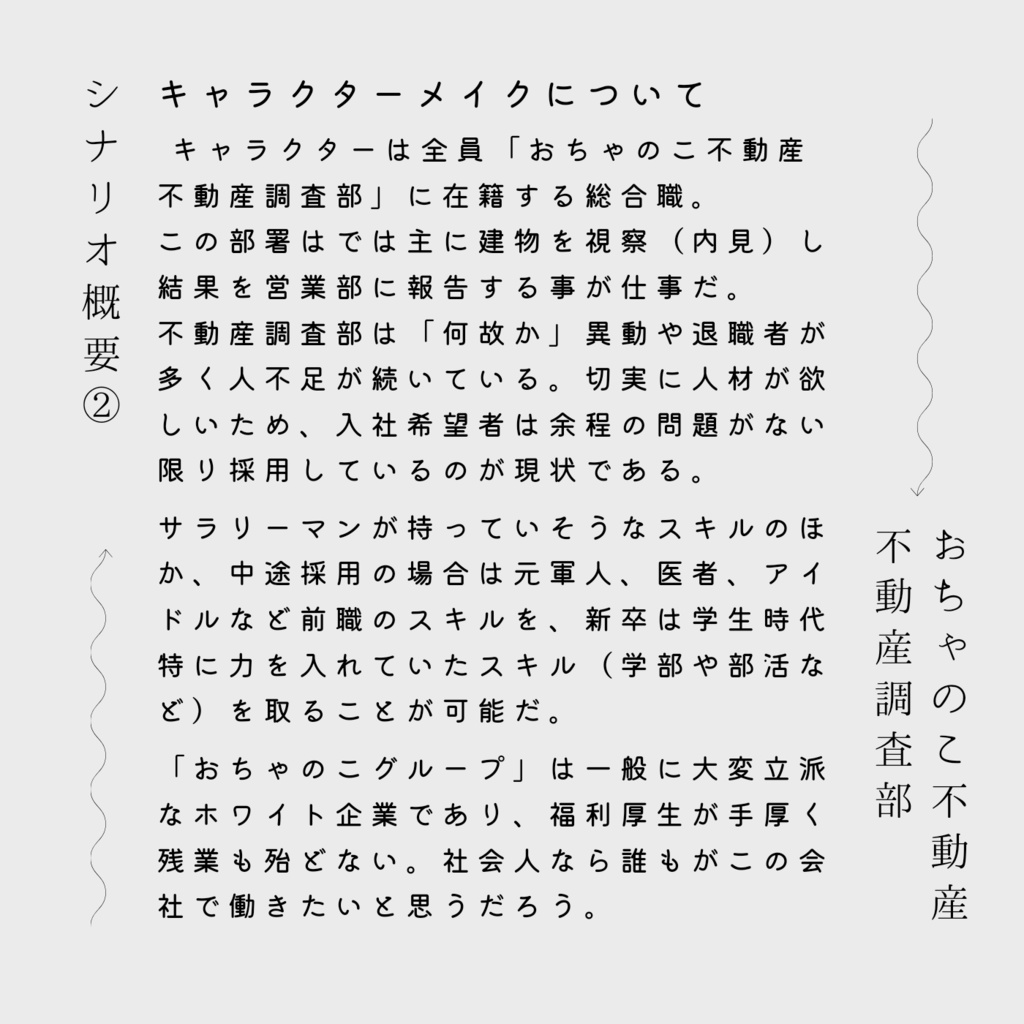 シナリオ概要②
キャラクターメイクについて
キャラクターは全員「おちゃのこ不動産
不動産調査部」に在籍する総合職。
この部署はでは主に建物を視察（内見）し
結果を営業部に報告する事が仕事だ。
不動産調査部は「何故か」異動や退職者が
多く人不足が続いている。切実に人材が欲
しいため、入社希望者は余程の問題がない
限り採用しているのが現状である。
サラリーマンが持っていそうなスキルのほ
か、中途採用の場合は元軍人、医者、アイ
ドルなど前職のスキルを、新卒は学生時代
特に力を入れていたスキル（学部や部活な
ど）を取ることが可能だ。
「おちゃのこグループ」は一般に大変立派
なホワイト企業であり、福利厚生が手厚く
残業も殆どない。社会人なら誰もがこの会
社で働きたいと思うだろう。
おちゃのこ不動産
不動産調査部